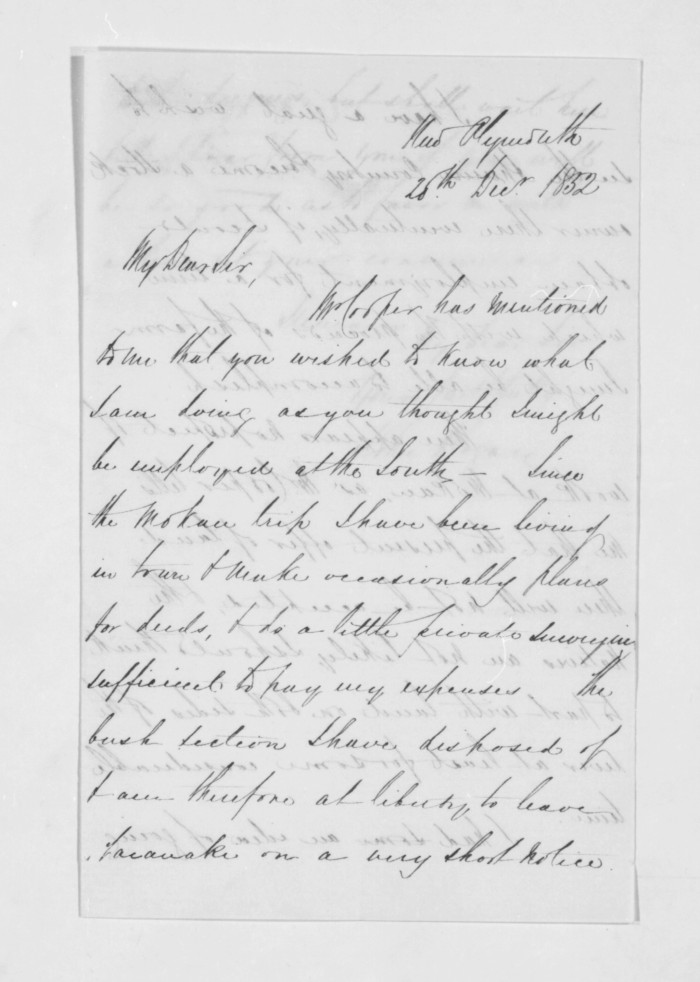 New Plymouth
20th Decr 1852
My Dear Sir,
Mr Cooper has mentioned
to me that you wished to know what
I am doing, as you thought I might
be employed at the South, — Since
the Mokau trip I have been living
in town & make occasionally plans
for deeds, & do a little private surveying
sufficient to pay my expenses. The
bush section I have disposed of
& am therefore at liberty to leave
Taranaki on a very short notice.